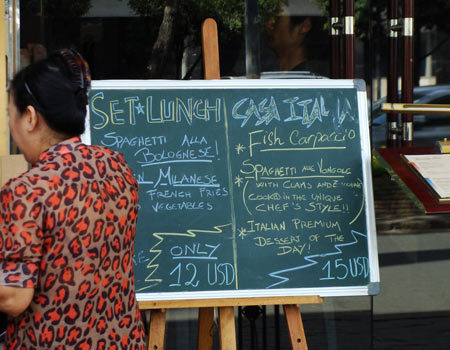 SET LUNCH
SPAGHETTI ALLA
BOLOGNESE!
MILANESE
FRENCH FRIES
VEGETABLES
ONLY
12 USD
CASA ITALIA
* FISH CARPACCIO
* SPAGHETTI ALLE VONGOLE
WITH CLAMS AND
(COOKED IN THE UNIQUE
CHEF'S STYLE!!)
* ITALIAN PREMIUM
DESSERT OF THE
DAY!
15 USD